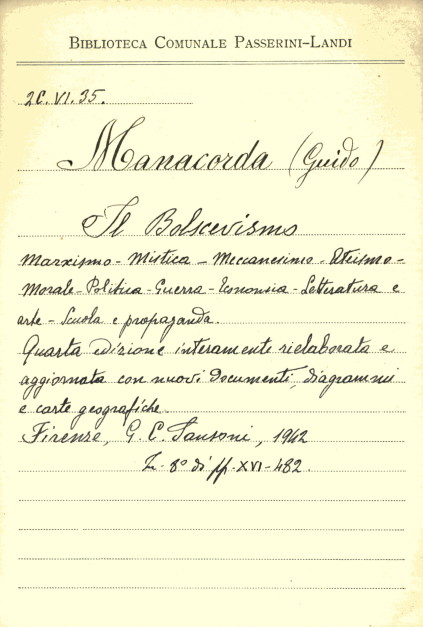 BIBLIOTECA COMUNALE PASSERINI-LANDI
2C.VI.35.
Manacorda (Guido)
Il Bolscevismo
Marxismo - Mistica - Meccanesimo - Ateismo -
Morale - Politica - Guerra - Economia - Letteratura e
arte - Scuola e propaganda.
Quarta edizione interamente rielaborata e
aggiornata con nuovi documenti, diagrammi
e carte geografiche.
Firenze, G. C. Sansoni, 1942
in 8° di pp. XVI-482.